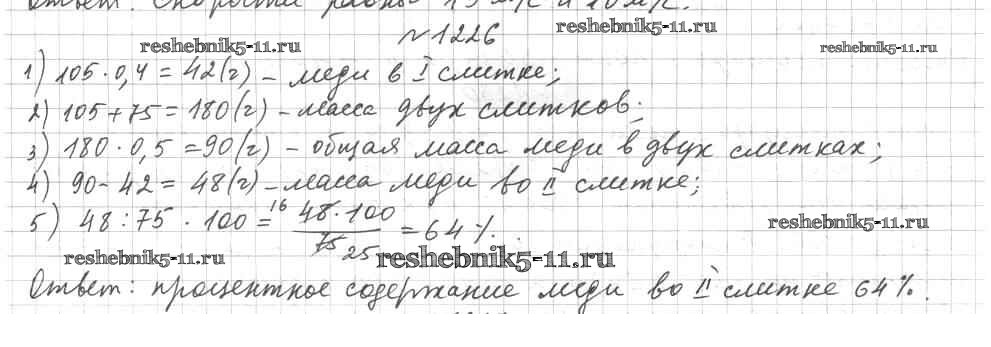 Ответ: скорости равны 15 м/с и 10 м/с.
reshebnik5-11.ru
№1226
reshebnik5-11.ru
reshebnik5-11.ru
1) 105·0,4 = 42(г) – меди в I слитке;
2) 105+75 = 180(г) – масса двух слитков;
3) 180·0,5 = 90(г) – общая масса меди в двух слитках;
4) 90-42 = 48(г) – масса меди во II слитке;
5) 48:75·100 = 16 48·100 / 75 25 = 64%.
reshebnik5-11.ru
reshebnik5-11.ru
reshebnik5-11.ru
Ответ: процентное содержание меди во II слитке 64%.